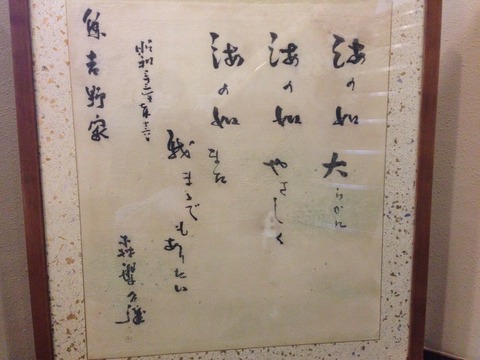 海の如 大らかに
海の如 やさしく
海の如 また
我まゝでもありたい
昭和三十
森繁久彌
吉野家